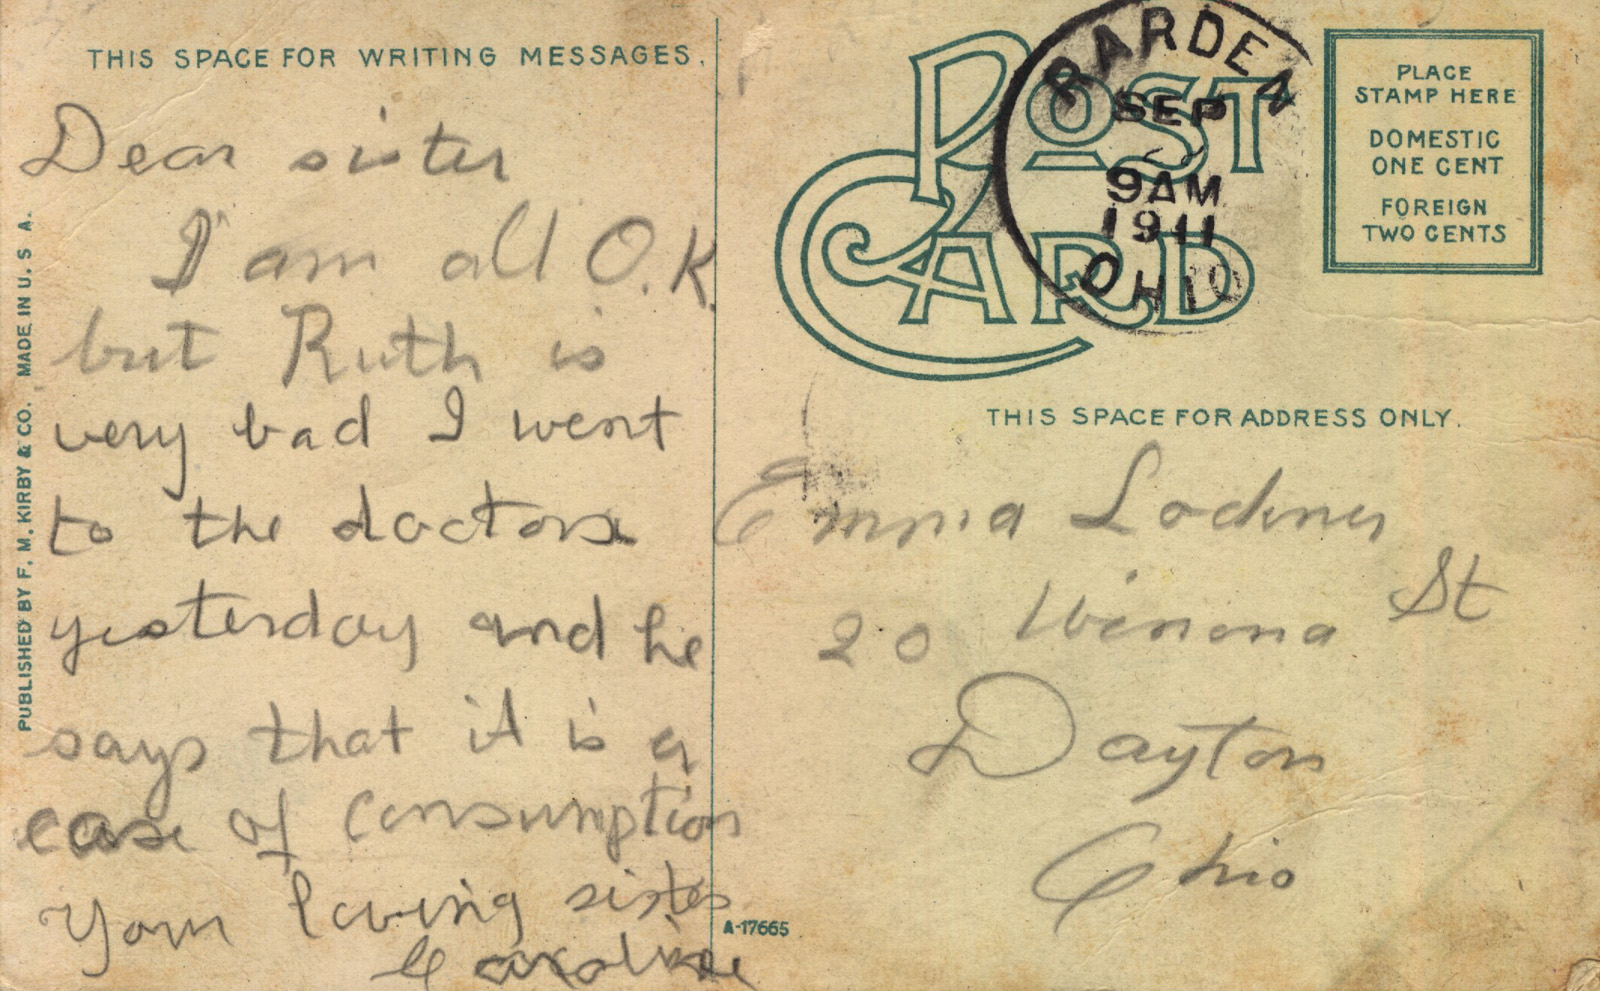 THIS SPACE FOR WRITING MESSAGES.
Dear sister
I am all O.K.
but Ruth is
very bad I went
to the doctors
yesterday and he
says that it is a
case of consumption
Your loving sister
Caroline
PUBLISHED BY F. M. KIRBY & CO. MADE IN U. S. A.
A-17665
POST CARD
RARDEN
SEP
9AM
1911
OHIO
PLACE
STAMP HERE
DOMESTIC
ONE CENT
FOREIGN
TWO CENTS
THIS SPACE FOR ADDRESS ONLY.
Emma
20 Winona St
Dayton
Ohio